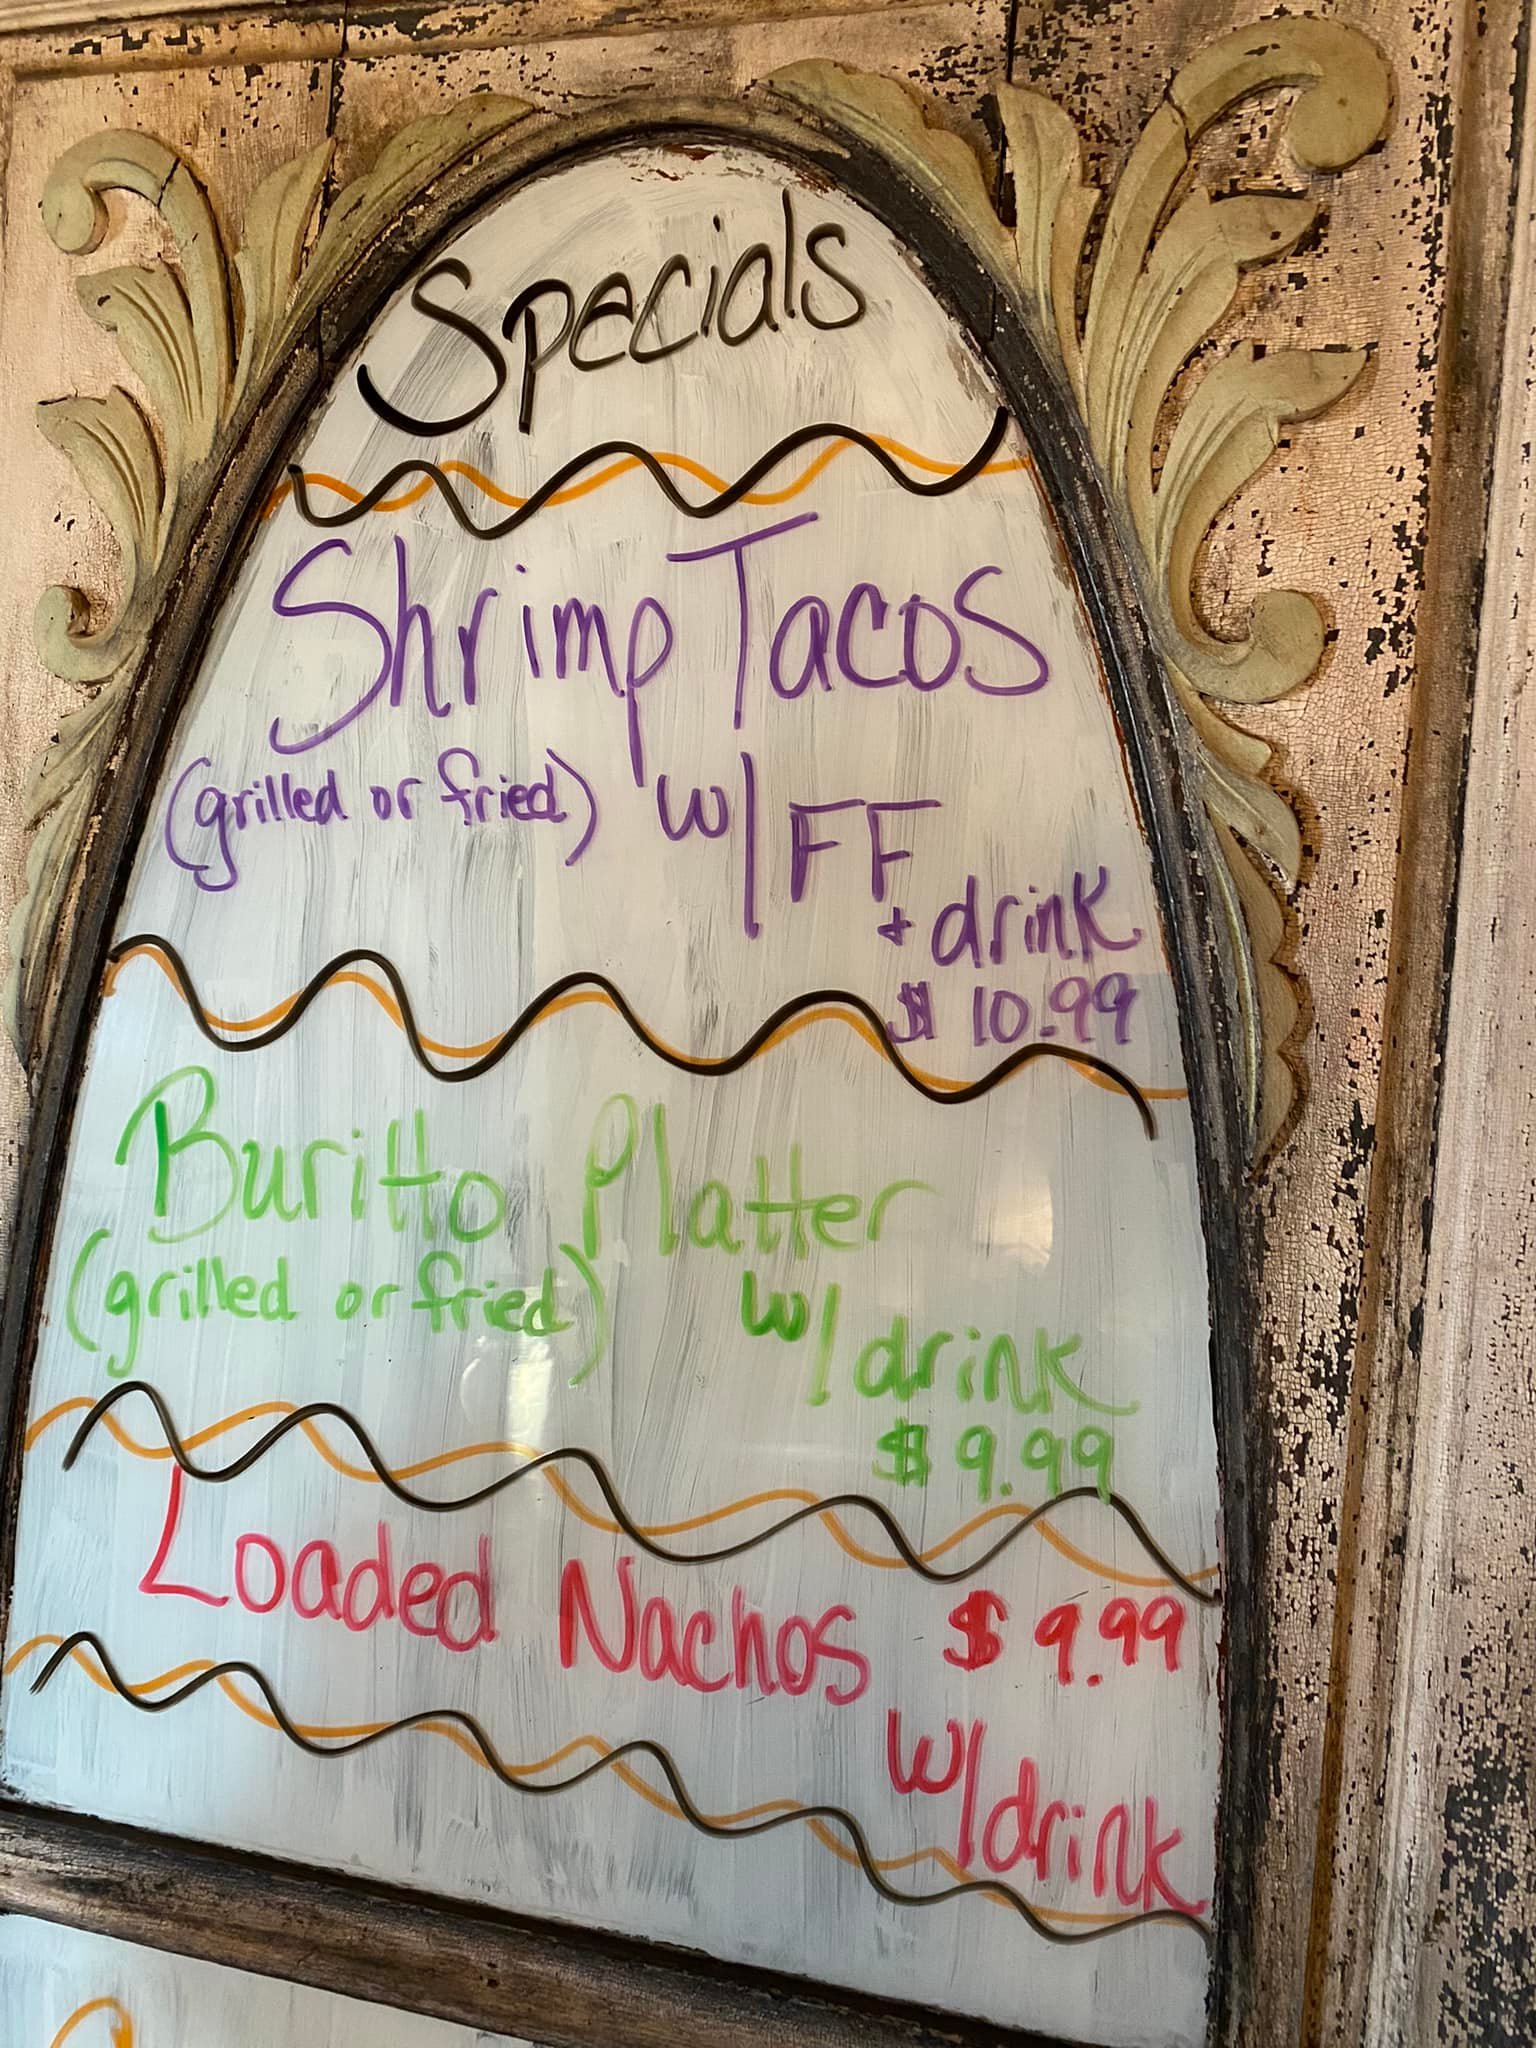 Specials
Shrimp Tacos
(grilled or fried) w/FF
+ drink
$ 10.99
Buritto Platter
(grilled or fried) w/drink
$ 9.99
Loaded Nachos $ 9.99
w/drink